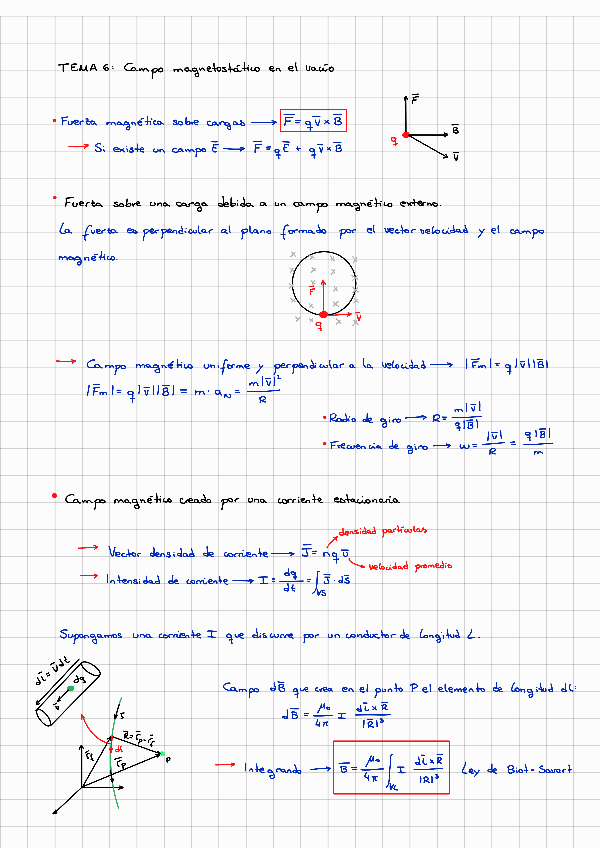 TEMA 6: Campo magnetostático en el vacío
• Fuerza magnética sobre cargas → F̅ = q v̅ × B̅
→ Si existe un campo E̅ → F̅ = q E̅ + q v̅ × B̅
F̅
B̅
q
v̅
• Fuerza sobre una carga debida a un campo magnético externo.
La fuerza es perpendicular al plano formado por el vector velocidad y el campo
magnético.
x x x x
F̅
v̅
q
→ Campo magnético uniforme y perpendicular a la velocidad → |F̅m| = q |v̅||B̅|
|F̅m| = q |v̅||B̅| = m · a_N = m|v̅|² / R
• Radio de giro → R = m|v̅| / q|B̅|
• Frecuencia de giro → ω = |v̅| / R = q|B̅| / m
• Campo magnético creado por una corriente estacionaria
densidad partículas
→ Vector densidad de corriente → J̅ = n q v̅
velocidad promedio
→ Intensidad de corriente → I = dq/dt = ∫ J̅ · ds̅
Supongamos una corriente I que discurre por un conductor de longitud L.
dl̅ = v̅dt
dq
v̅
Campo dB̅ que crea en el punto P el elemento de longitud dl:
dB̅ = μ₀/4π I dl̅ × R̅ / |R̅|³
I
R̅ = r̅p - r̅l
dl
P
r̅l
r̅p
→ Integrando → B̅ = μ₀/4π ∫ I dl̅ × R̅ / |R|³ Ley de Biot-Savart